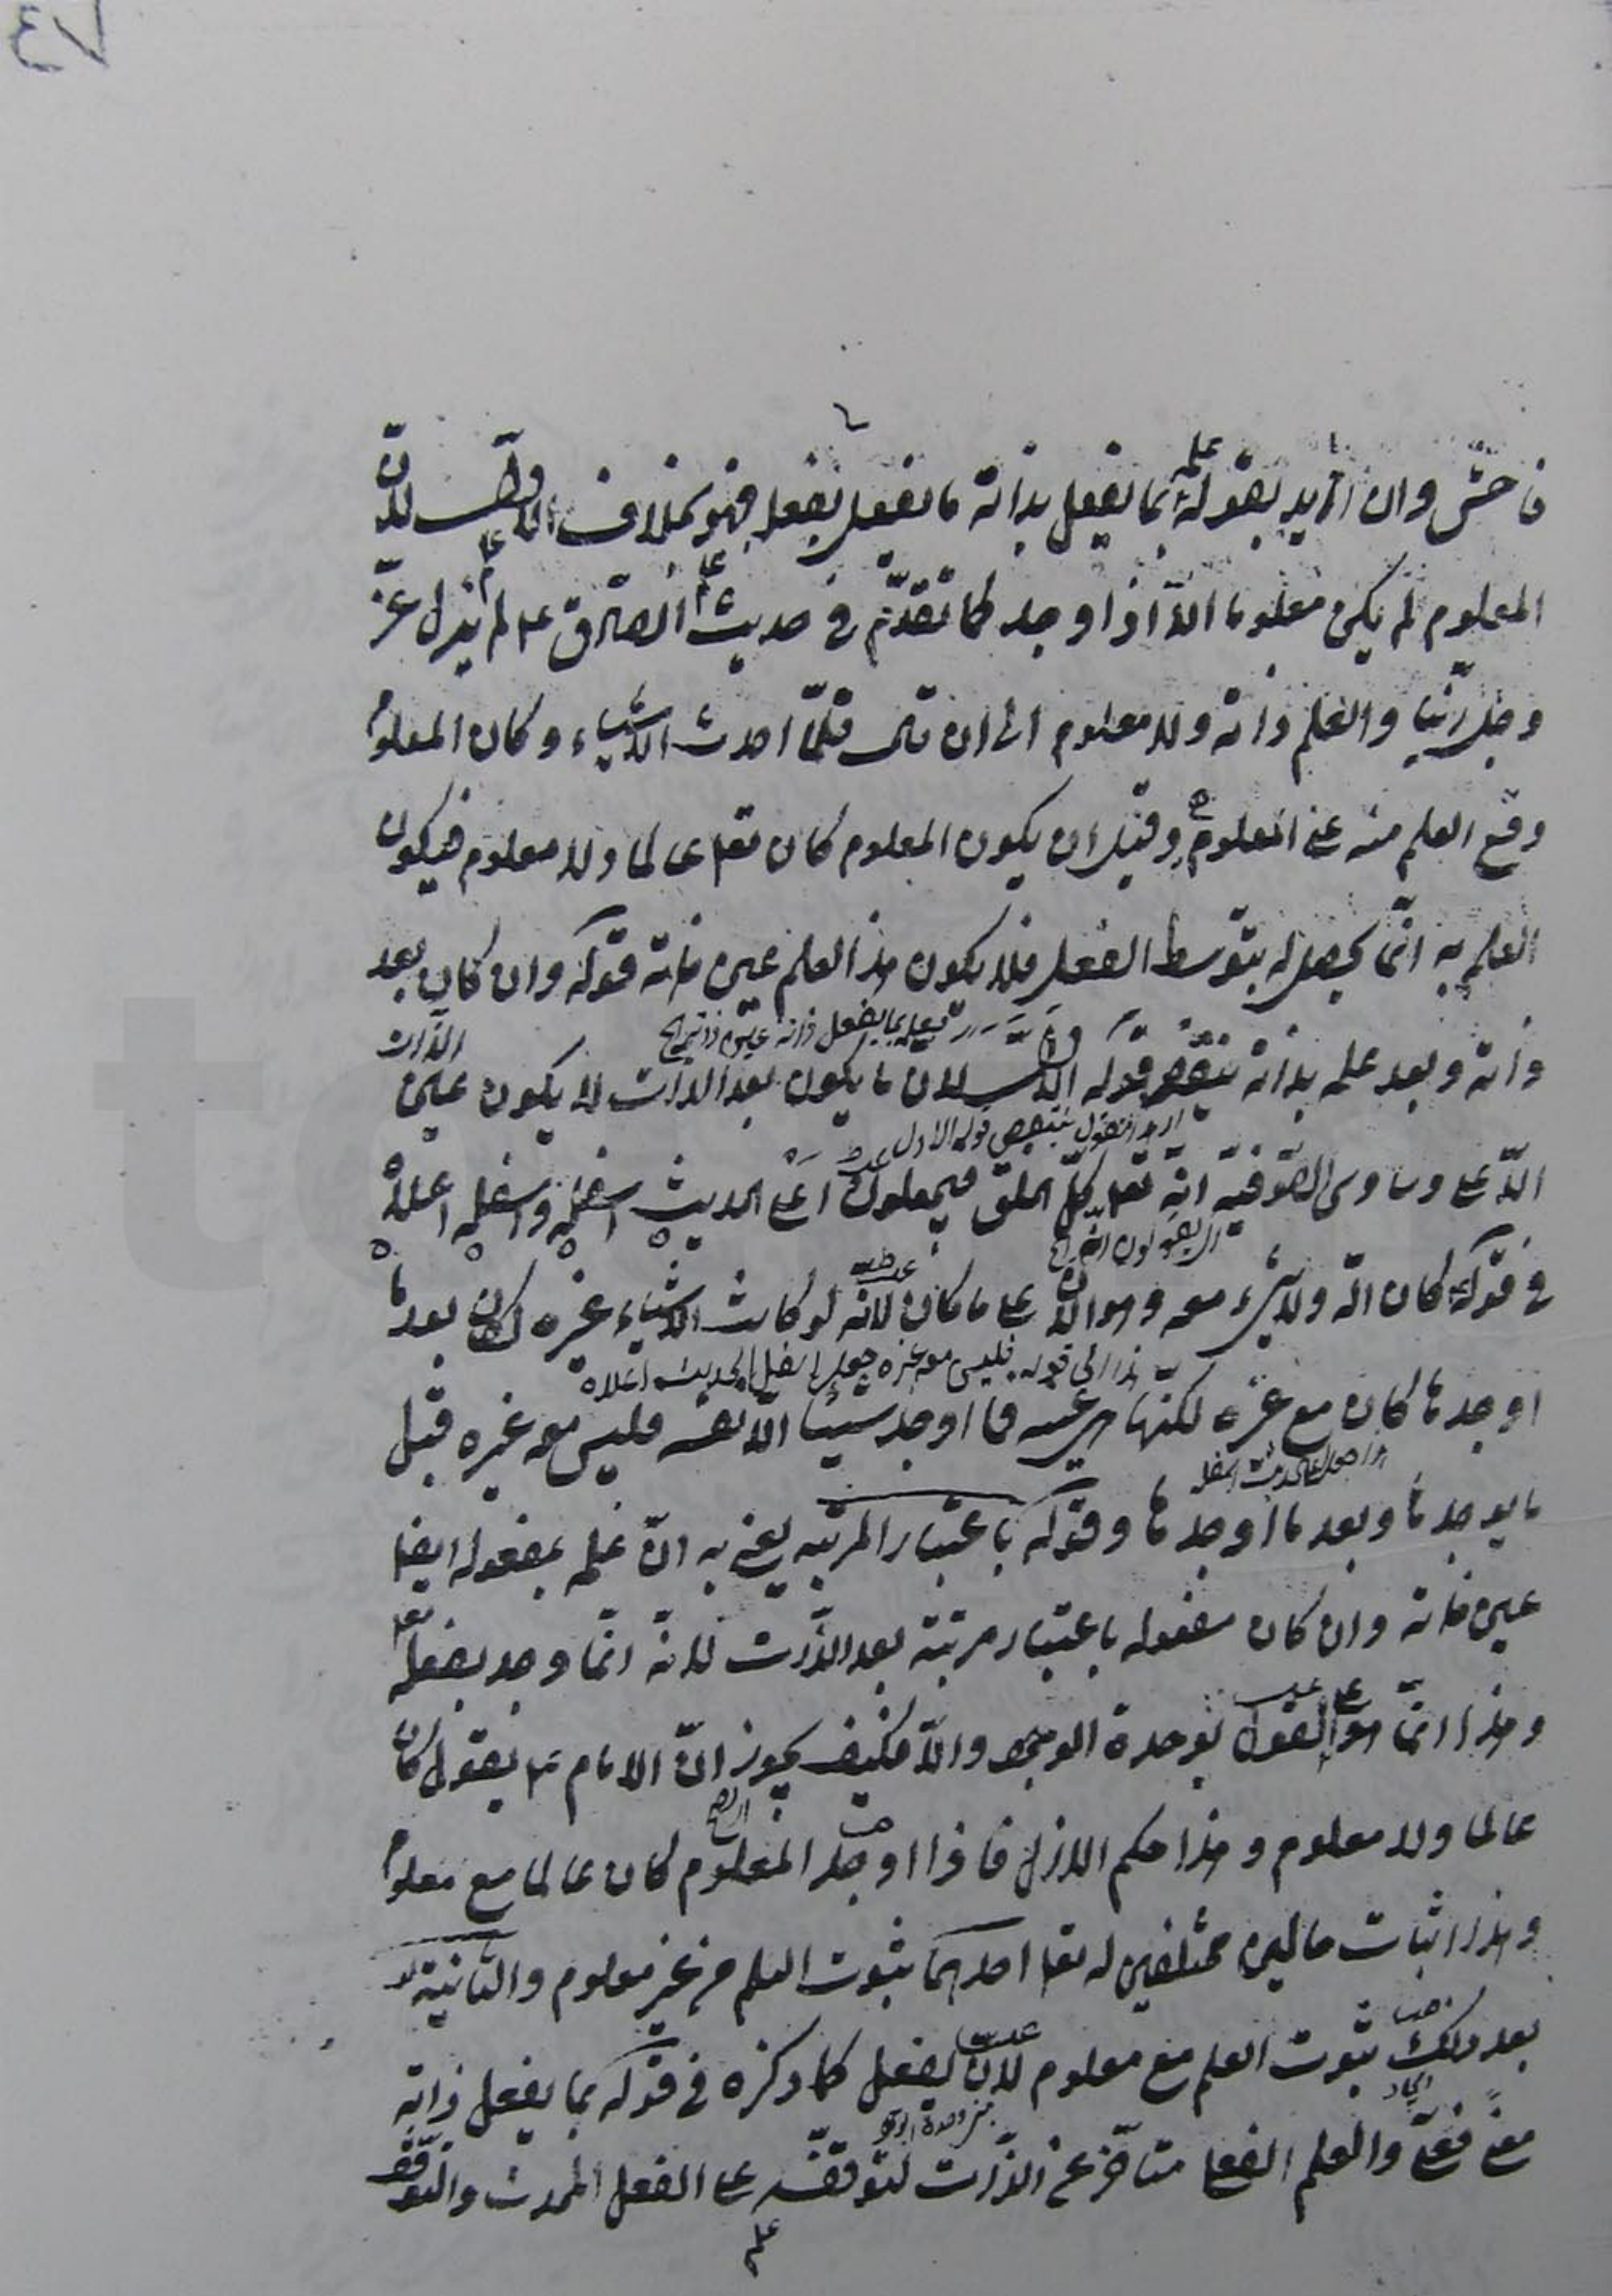 ٧٣
فاحش وان اريد بقوله علمه بما يفعل بذاته ما يفعل بفعله فهو بخلاف الاول لان
المعلوم لم يكن معلوما الا اذا وجد كما تقدم في حديث الصادق ع لم يزل الله عز
وجل ربنا والعلم ذاته ولا معلوم الى ان قال فلما احدث الاشياء وكان المعلوم
وقع العلم منه على المعلوم وقبل ان يكون المعلوم كان تعا عالما ولا معلوم فيكون
العلم به انما يحصل له بتوسط الفعل فلا يكون هذا العلم عين ذاته قوله وان كان بعد
علمه بما يفعل ذاته عين ذاته
ذاته وبعد علمه بذاته ينقض قوله الاول لان ما يكون بعد الذات لا يكون عين الذات
ينقض قوله الاول
الا على وساوس الصوفية انه تعا كل الخلق فيجعلون اعلى الحديث اسفله واسفله اعلاه
في قوله كان الله ولا شيء معه وهو الان على ما كان لانه لو كانت الاشياء غيره لكان بعد ما
الى قوله فليس معه غيره جعل اسفل الحديث اعلاه
اوجدها كان مع غيره لكنها هي عينه فما اوجد شيئا الا نفسه فليس معه غيره قبل
ما يوجدها وبعد ما اوجدها وقوله باعتبار المرتبه يعني به ان علمه بمفعوله ايضا
عين ذاته وان كان مفعوله باعتبار مرتبته بعد الذات لانه انما وجد بفعله تعا
وهذا انما هو على القول بوحدة الوجود والا فكيف يجوز ان الامام ع يقول كان
عالما ولا معلوم وهذا حكم الازل فاذا اوجد المعلوم كان عالما مع معلوم
وهذا اثبات حالين مختلفين له تعا احدهما ثبوت العلم من غير معلوم والثانية
بعد ذلك ثبوت العلم مع معلوم لان الفعل كما ذكره في قوله بما يفعل ذاته
وحدة الوجود
معنى فعلي والعلم الفعلي متاخر عن الذات لتوقفه على الفعل المحدث والتوقف